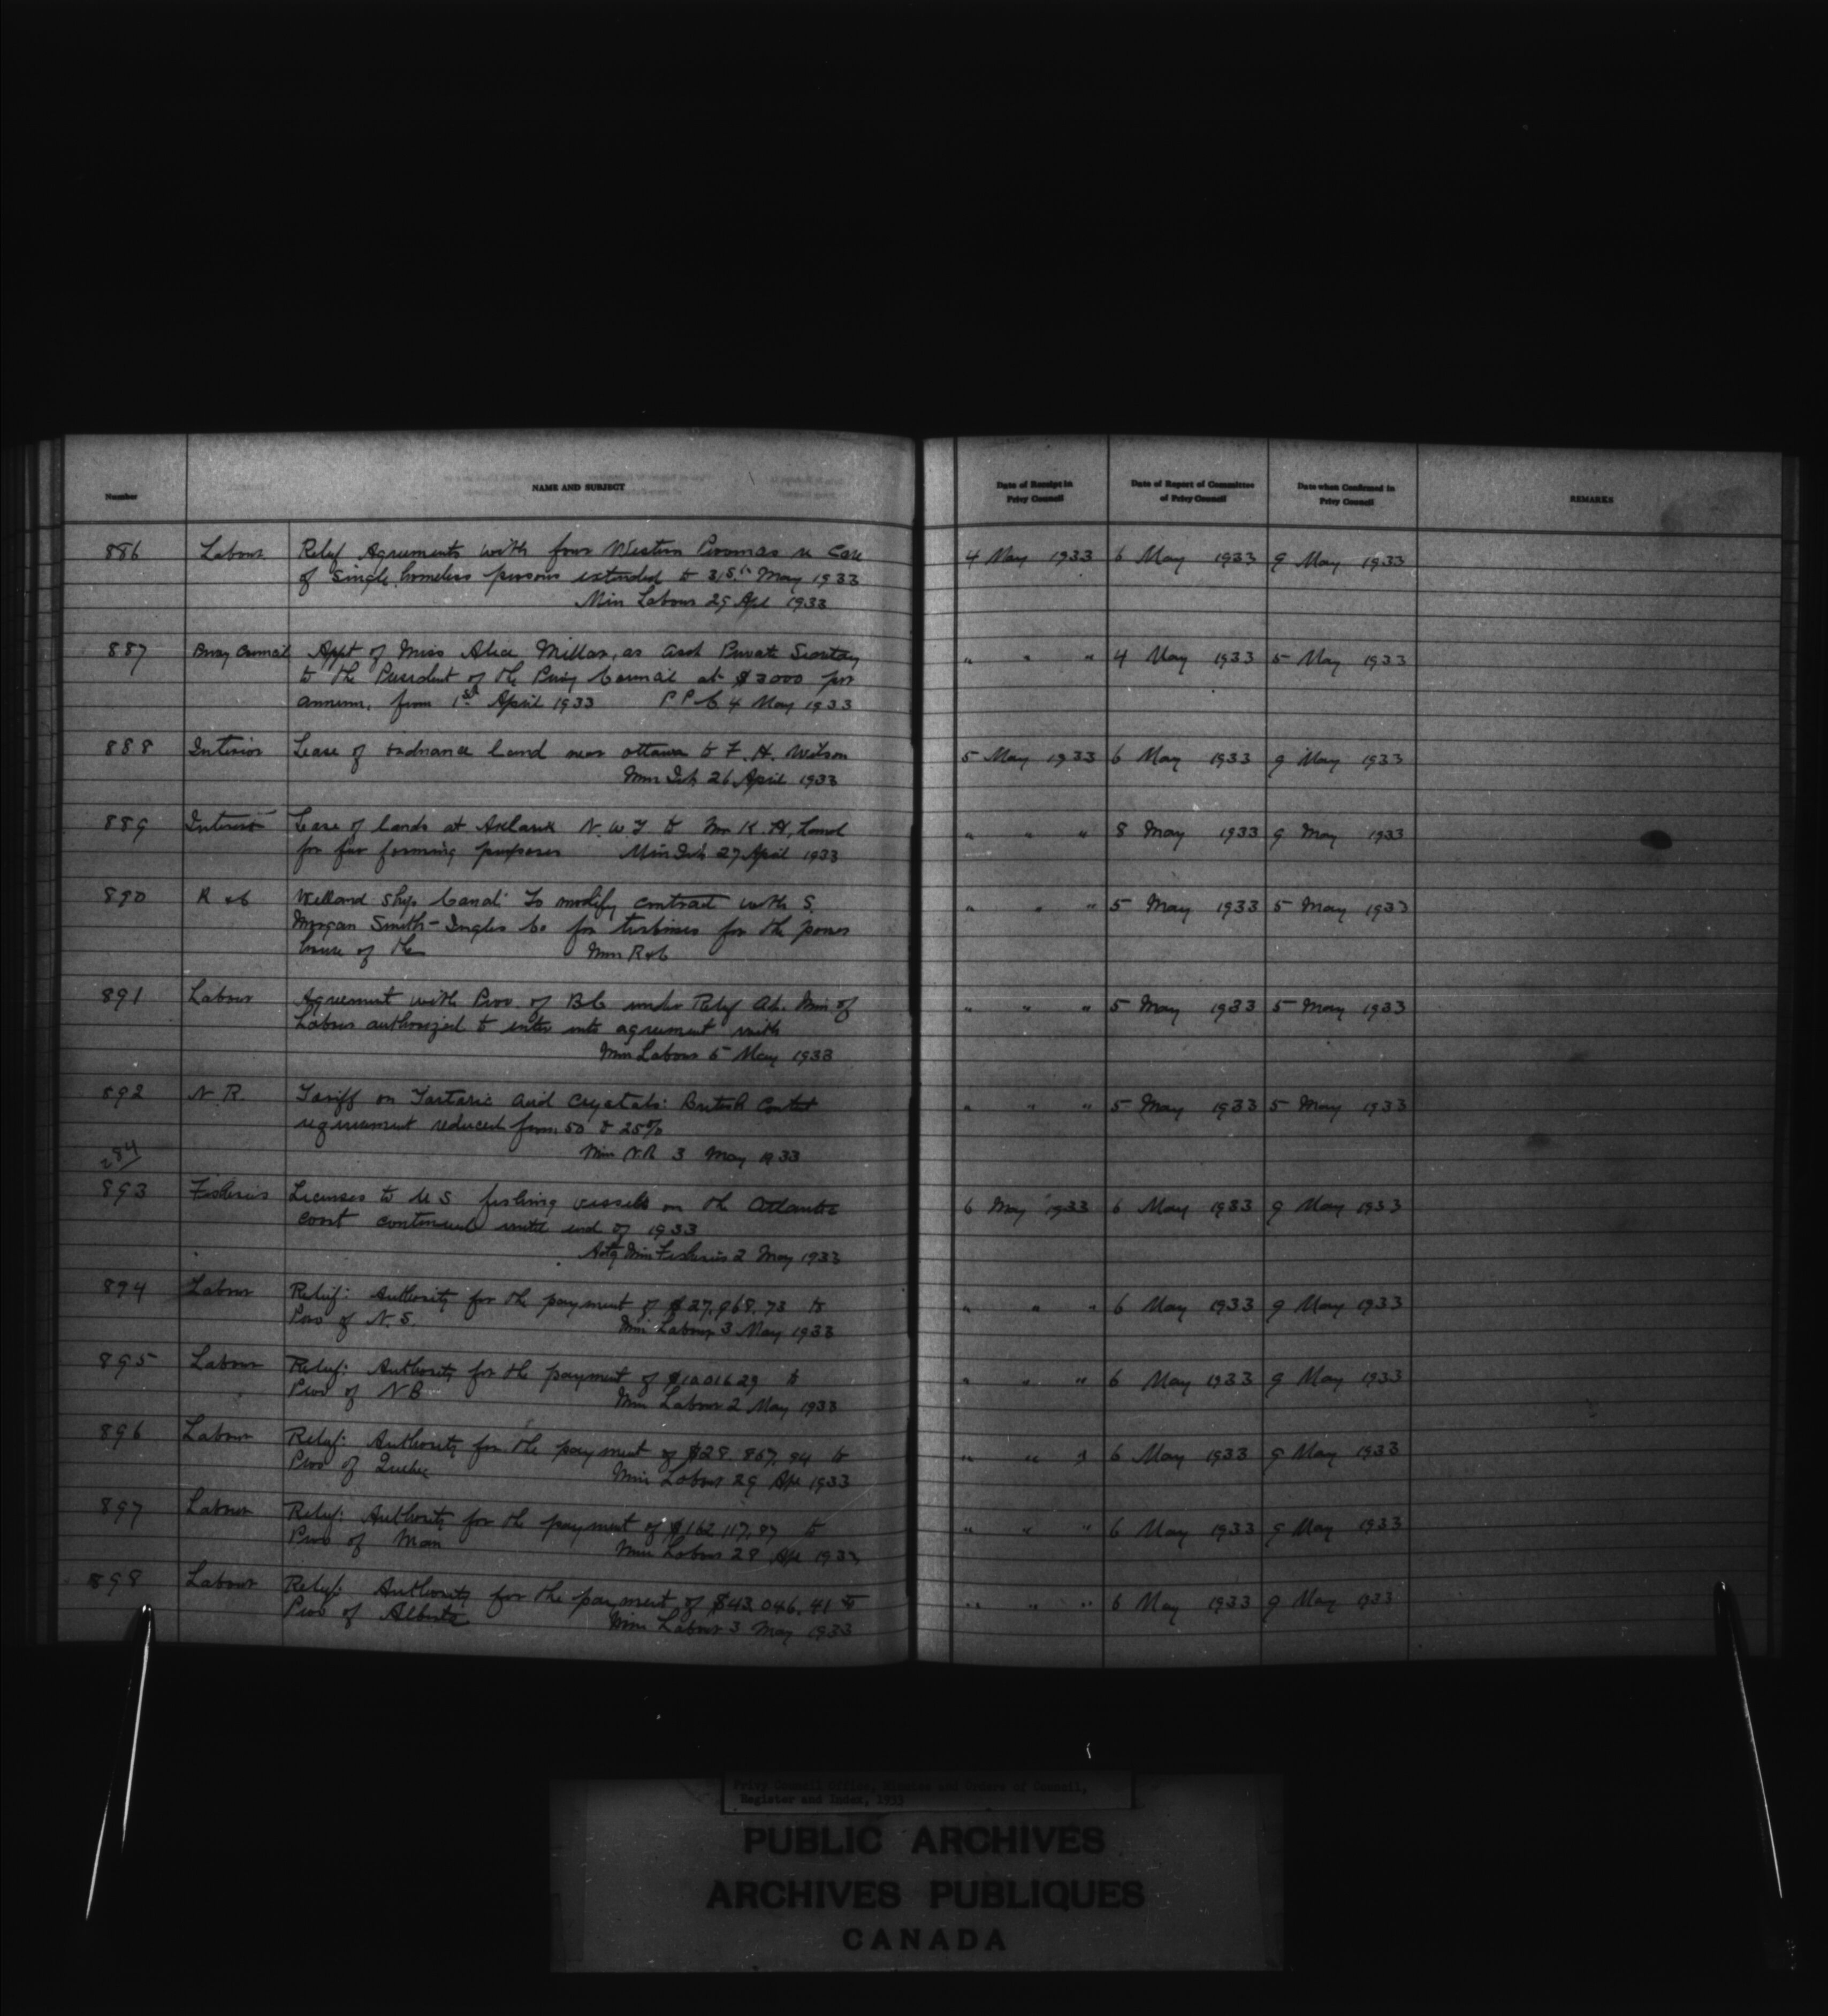 Number
NAME AND SUBJECT
Date of Receipt in
Privy Council
Date of Report of Committee
of Privy Council
Date when Confirmed in
Privy Council
REMARKS
886 Labour Relief Agreements with four Western Provinces re Care 4 May 1933 6 May 1933 9 May 1933
of single homeless persons extended to 31st May 1933
Min Labour 29 Apl 1933
887 Privy Council Appt of Miss Alice Millar, as Asst Private Secretary " " " 4 May 1933 5 May 1933
to the President of the Privy Council at $3000 per
annum, from 1st April 1933 P P C 4 May 1933
888 Interior Lease of ordnance land near Ottawa to F. H. Wilson 5 May 1933 6 May 1933 9 May 1933
Min Int 26 April 1933
889 Interior Lease of lands at Aklavik N.W.T to Mr K. H. " " " 8 May 1933 9 May 1933
for fur farming purposes Min Int 27 April 1933
890 R & C Welland Ship Canal: To modify contract with S. " " " 5 May 1933 5 May 1933
Morgan Smith-Inglis Co for turbines for the power
house of the Min R & C
891 Labour Agreement with Prov. of B C under Relief Act. Min of " " " 5 May 1933 5 May 1933
Labour authorized to enter into agreement with
Min Labour 5 May 1933
892 N. R. Tariff on Tartaric Acid Crystals: British Content " " " 5 May 1933 5 May 1933
requirement reduced from 50 to 25%
Min N.R 3 May 1933
284
893 Fisheries Licenses to U S fishing vessels on the Atlantic 6 May 1933 6 May 1933 9 May 1933
coast continued until end of 1933
Actg Min Fisheries 2 May 1933
894 Labour Relief: Authority for the payment of $27,968.73 to " " " 6 May 1933 9 May 1933
Prov of N. S. Min Labour 3 May 1933
895 Labour Relief: Authority for the payment of to " " " 6 May 1933 9 May 1933
Prov of N B Min Labour 2 May 1933
896 Labour Relief: Authority for the payment of $28.867.94 to " " " 6 May 1933 9 May 1933
Prov of Quebec Min Labour 29 Apl 1933
897 Labour Relief: Authority for the payment of $162 117.87 to " " " 6 May 1933 9 May 1933
Prov of Man Min Labour 28 Apl 1933
898 Labour Relief: Authority for the payment of $43,046.41 to " " " 6 May 1933 9 May 1933
Prov of Alberta Min Labour 3 May 1933
Privy Council Office, Minutes and Orders of Council,
Register and Index, 1933
PUBLIC ARCHIVES
ARCHIVES PUBLIQUES
CANADA